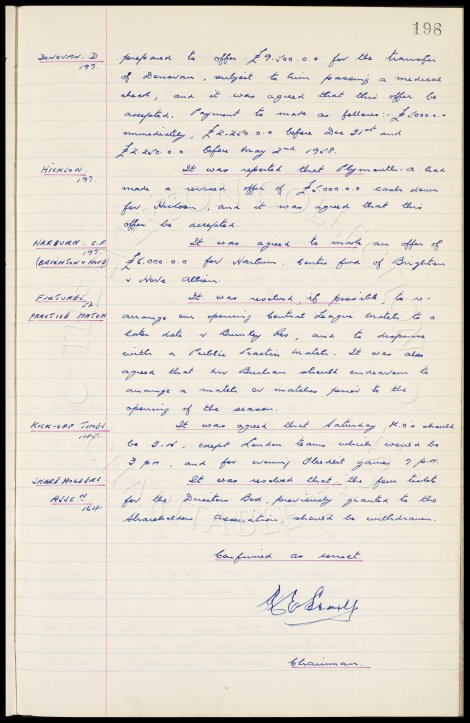 198
DONOVAN. D
197.
prepared to offer £9.500.0.0 for the transfer
of Donovan, subject to him passing a medical
check, and it was agreed that this offer be
accepted. Payment to made as follows:- £5000.0.0
immediately, £2.250.0.0 before Dec 31st and
£2.250.0.0 before May 2nd 1958.
HICKSON.
197.
It was reported that Plymouth. A. had
made a revised offer of £5.000.0.0 cash down
for Hickson, and it was agreed that this
offer be accepted.
HARBURN. C.F.
197.
(BRIGHTON & HOVE)
It was agreed to make an offer of
£6.000.0.0 for Harburn, Centre fwd of Brighton
& Hove Albion.
FIXTURES.
PRACTICE MATCH
It was resolved, if possible, to re-
arrange our opening Central League match to a
later date v Burnley Res, and to dispense
with a Public Practice match. It was also
agreed that Mr Buchan should endeavour to
arrange a match or matches prior to the
opening of the season.
KICK-OFF TIMES
145.
It was agreed that Saturday K.O's should
be 3.15, except London teams which would be
3 p.m., and for evening Floodlit games 7 p.m.
SHARE HOLDERS
ASSCN
164
It was resolved that the four tickets
for the Directors Box, previously granted to the
Shareholders Association should be withdrawn.
Confirmed as correct.
Chairman.